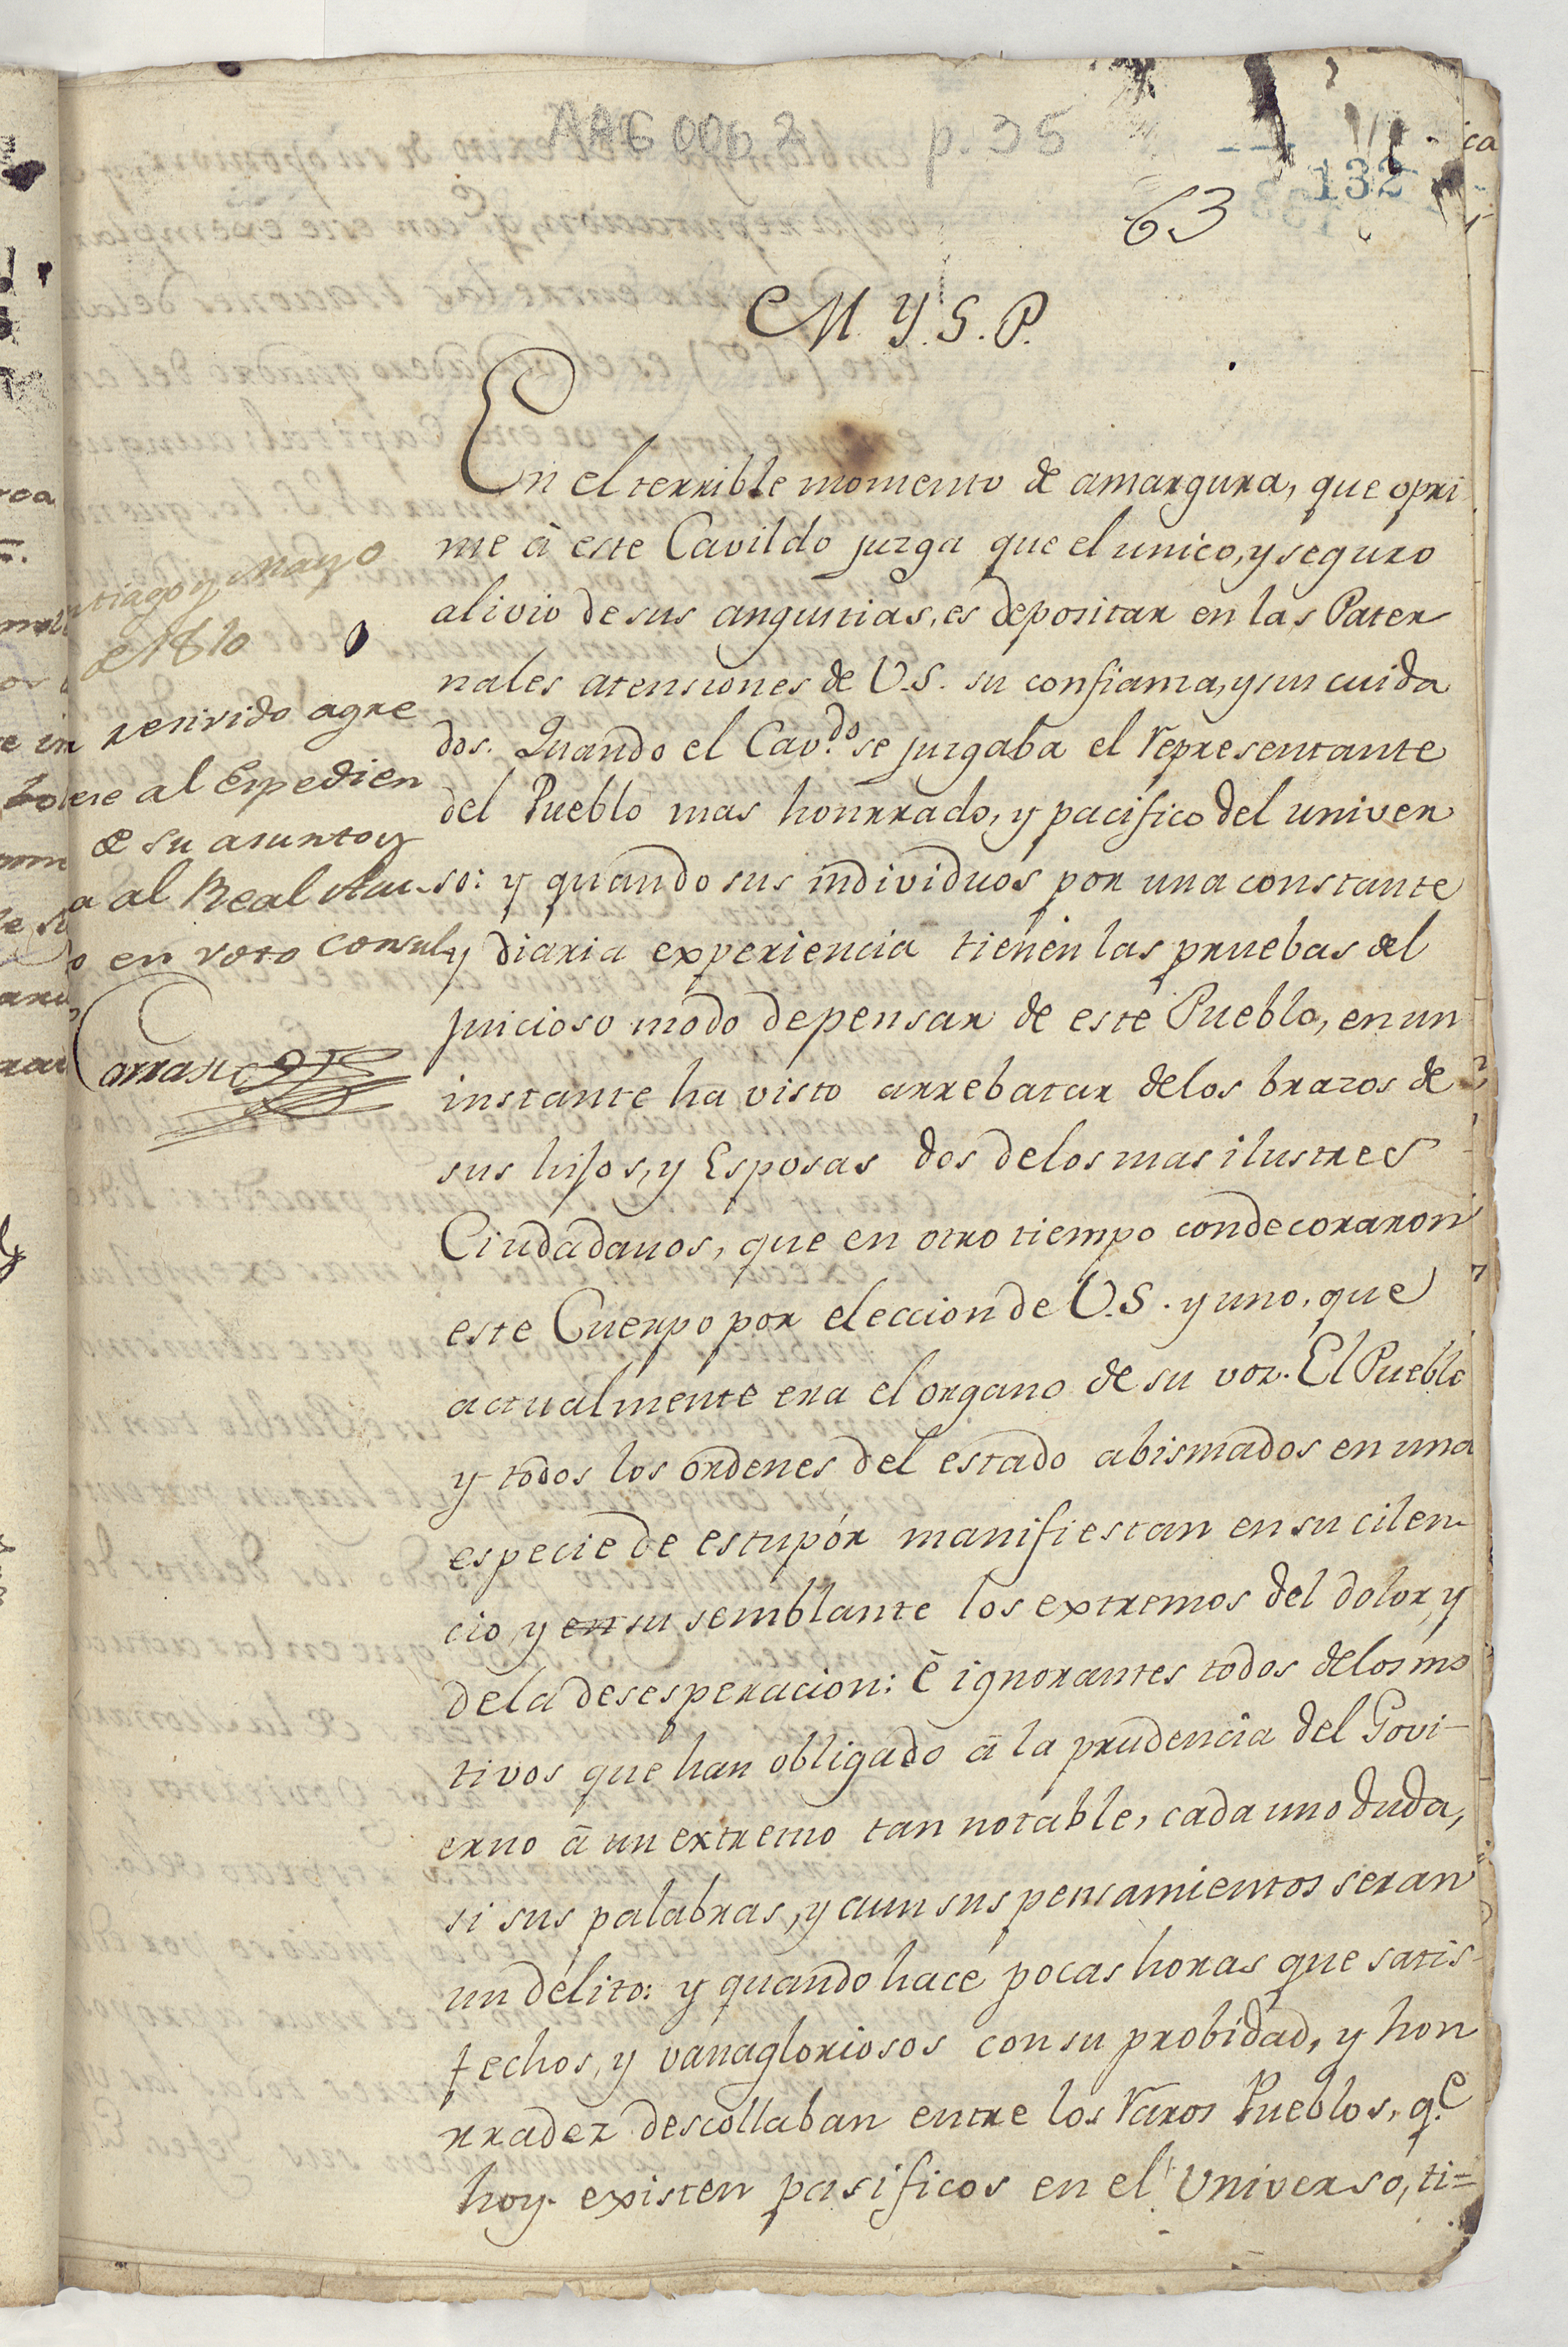 AAG 006 2 p. 35
132
63
M. Y. S. P.
En el terrible momento de amargura, que opri
me à este Cavildo juzga que el unico, y seguro
alivio de sus angustias, es depositar en las Pater
nales atensiones de V.S. su confianza, y sus cuida
dos. Quando el Cav.do se juzgaba el representante
del Pueblo mas honrrado, y pacifico del univer
so: y quando sus individuos por una constante
y diaria experiencia tienen las pruebas del
juicioso modo de pensar de este Pueblo, en un
instante ha visto arrebatar delos brazos de
sus hijos, y Esposas dos delos mas ilustres
Ciudadanos, que en otro tiempo condecoraron
este Cuerpo por eleccion de V.S. y uno, que
actualmente era el organo de su voz. El Pueblo
y todos los ordenes del estado abismados en una
especie de estupór manifiestan en su cilen
cio, y en su semblante los extremos del dolor, y
dela desesperacion: è ignorantes todos delos mo
tivos que han obligado à la prudencia del Govi-
erno à un extremo tan notable, cada uno duda,
si sus palabras, y aun sus pensamientos seran
un delito: y quando hace pocas horas que satis-
fechos, y vanagloriosos con su probidad, y hon
rradez descollaban entre los raros Pueblos, q.e
hoy existen pasificos en el Universo, ti=
ntiago y Mayo
de 1810
resivido agre
ese al Expedien
de su asunto y
a al Real Acu-
o en voto consul
Carrasco